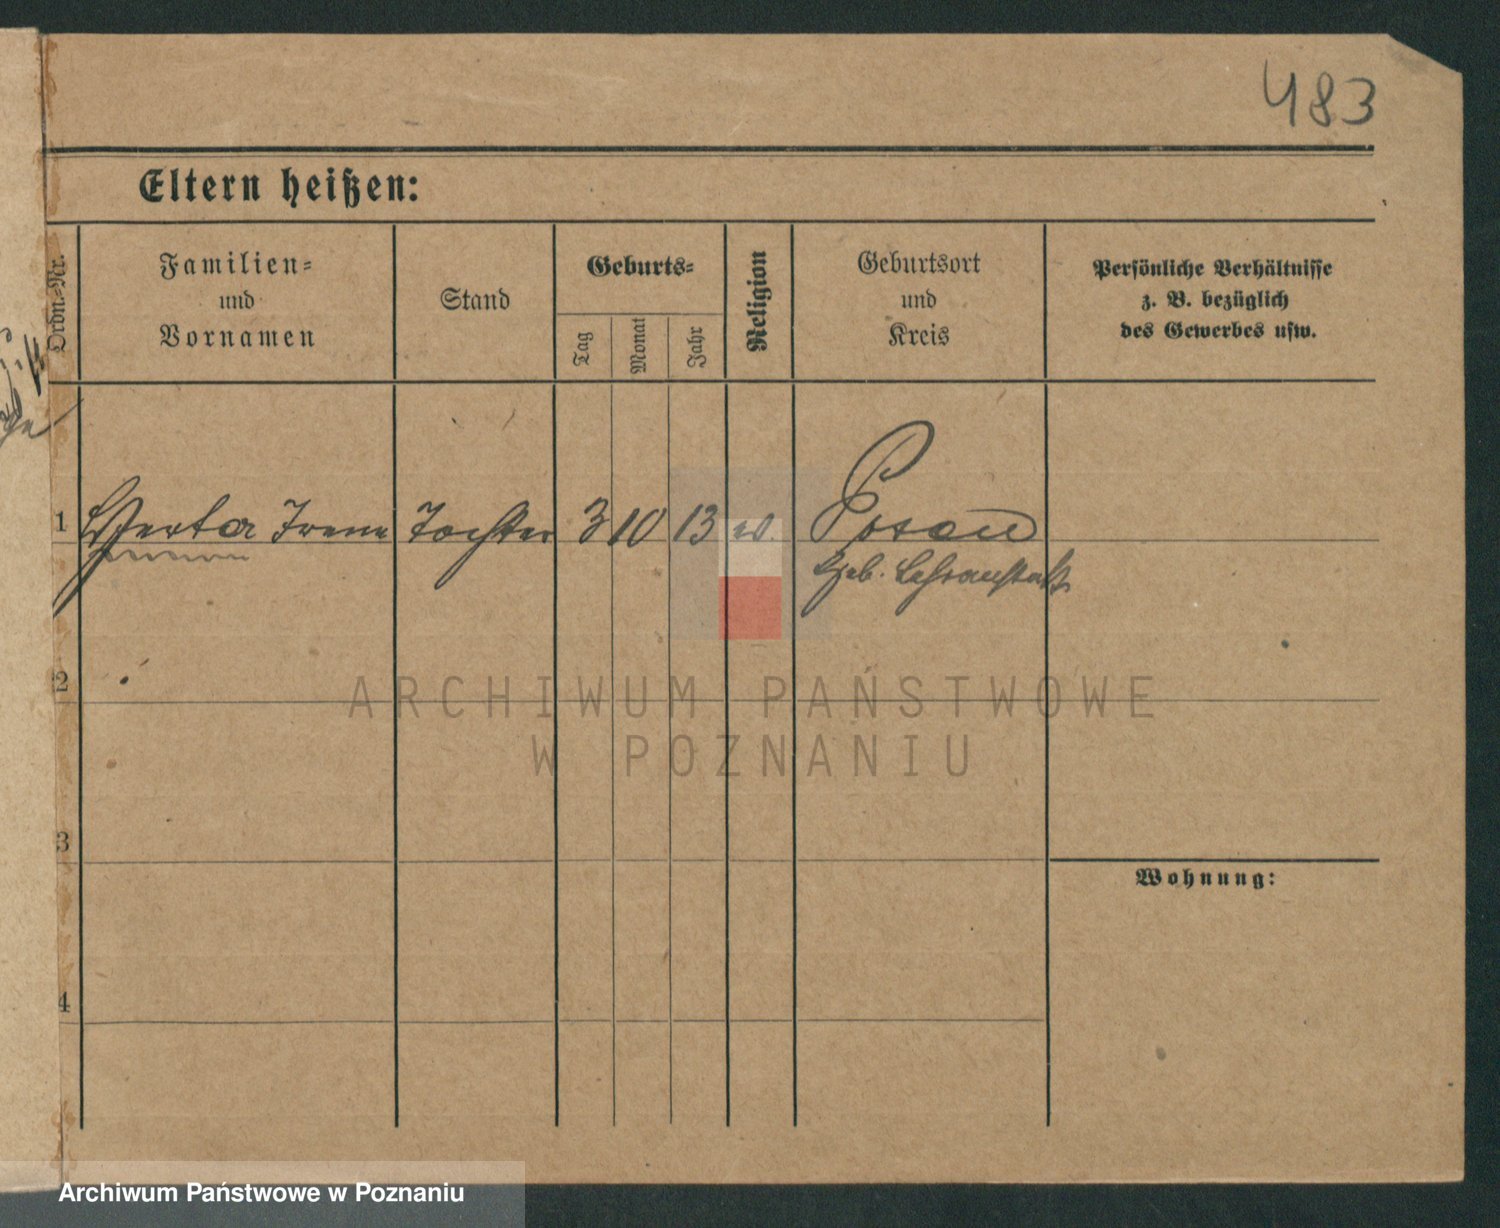 483
Eltern heißen:
Ordn.-Nr.
Familien-
und
Vornamen
Stand
Geburts-
Tag
Monat
Jahr
Religion
Geburtsort
und
Kreis
Persönliche Verhältnisse
z. B. bezüglich
des Gewerbes usw.
1 Gerta Irene Tochter 3 10 13 ev. Posen
Geb. Lehranstalt
2
3
4
Wohnung:
ARCHIWUM PAŃSTWOWE
W POZNANIU
Archiwum Państwowe w Poznaniu